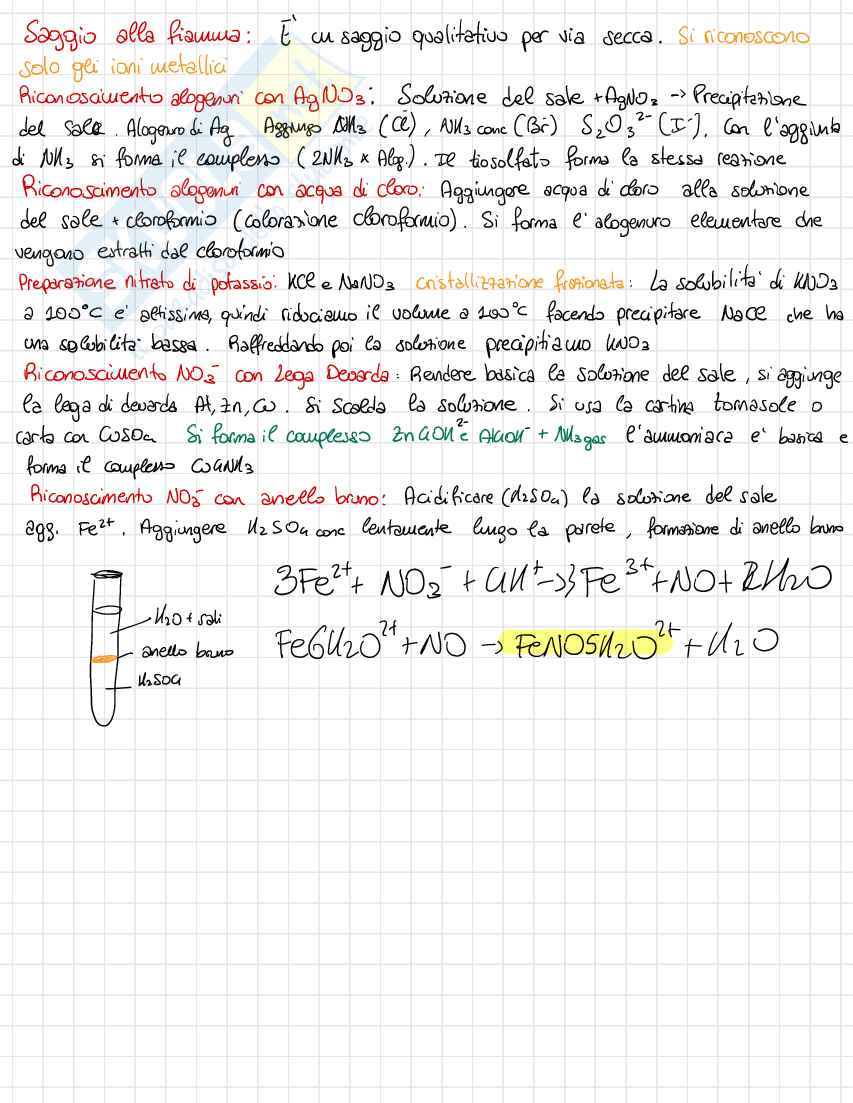 Saggio alla fiamma: È un saggio qualitativo per via secca. Si riconoscono
solo gli ioni metallici
Riconoscimento alogenuri con AgNO₃: Soluzione del sale + AgNO₃ -> Precipitazione
del sale. Alogenuro di Ag Aggiungo NH₃ (Cl⁻), NH₃ conc (Br⁻) S₂O₃²⁻ (I⁻). Con l'aggiunta
di NH₃ si forma il complesso (2NH₃ x Alog.). Il tiosolfato forma la stessa reazione
Riconoscimento alogenuri con acqua di cloro: Aggiungere acqua di cloro alla soluzione
del sale + cloroformio (colorazione cloroformio). Si forma l'alogenuro elementare che
vengono estratti dal cloroformio
Preparazione nitrato di potassio: KCl e NaNO₃ cristallizzazione frazionata: La solubilità di KNO₃
a 100°C e' altissima, quindi riduciamo il volume a 100°C facendo precipitare NaCl che ha
una solubilità bassa. Raffreddando poi la soluzione precipitiamo KNO₃
Riconoscimento NO₃⁻ con Lega Devarda: Rendere basica la soluzione del sale, si aggiunge
la lega di devarda Al, Zn, Cu. Si scalda la soluzione. Si usa la cartina tornasole o
carta con CuSO₄ Si forma il complesso Zn4OH²⁻ e Al4OH⁻ + NH₃gas l'ammoniaca e' basica e
forma il complesso Cu4NH₃
Riconoscimento NO₃⁻ con anello bruno: Acidificare (H₂SO₄) la soluzione del sale
agg. Fe²⁺. Aggiungere H₂SO₄ conc lentamente lungo la parete, formazione di anello bruno
3Fe²⁺ + NO₃⁻ + 4H⁺ -> 3Fe³⁺ + NO + 2H₂O
Fe6H₂O²⁺ + NO -> FeNO5H₂O²⁺ + H₂O
H₂O + sali
anello bruno
H₂SO₄